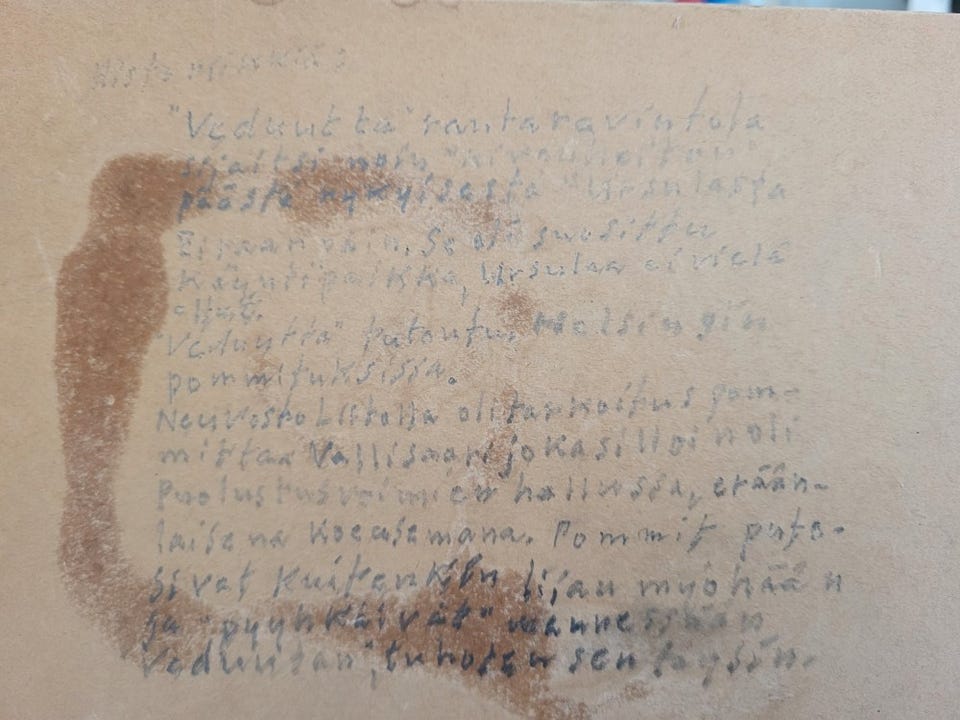 "Veduutta" rantaravintola
sijaitsi noin
päästä nykyisestä "Ursulasta
Eiraan päin. Se oli suosittu
käyntipaikka, Ursulaa ei vielä
ollut.
"Veduutta" tutoutui Helsingin
pommituksissa.
Neuvostoliitolla oli tarkoitus pom-
mittaa Vallisaari joka silloin oli
Puolustusvoimien hallussa, erään-
laisena koeasemana. Pommit puto-
sivat kuitenkin liian myöhään
ja "pyyhkäisivät" mannessaan
Veduutan", tuhoten sen täysin.